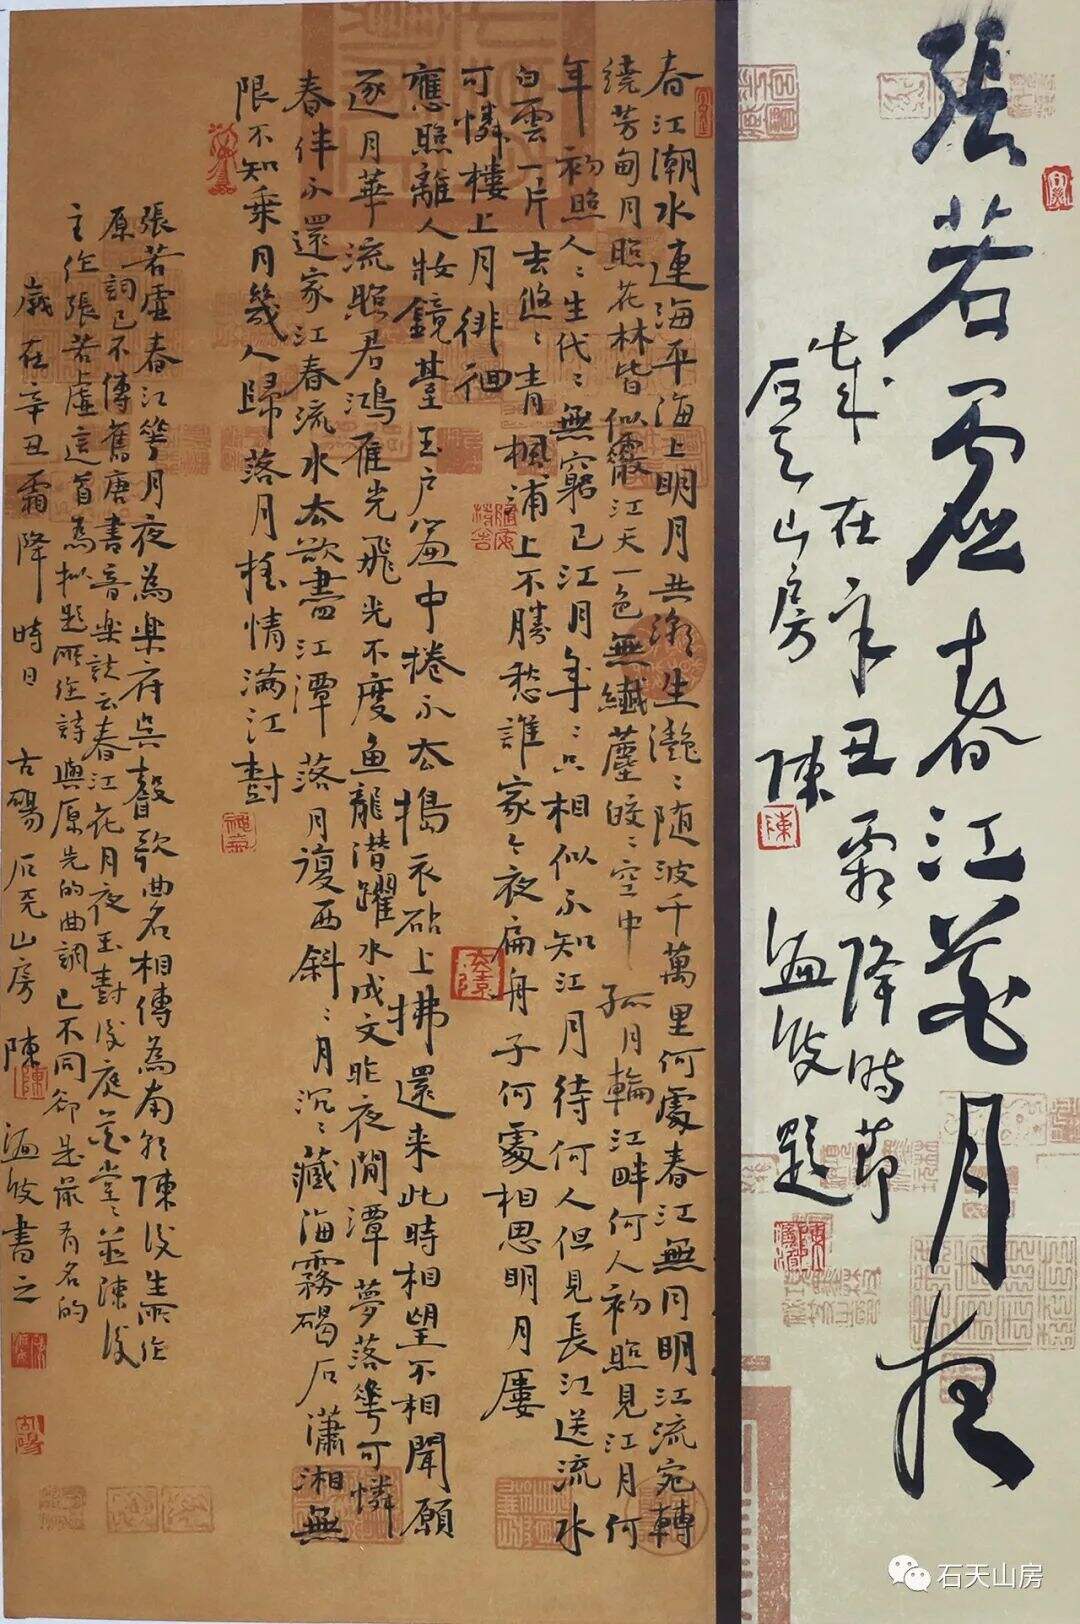 張若虛春江花月夜
歲在辛丑霜降時節
石天山房 陳 題
春江潮水連海平海上明月共潮生灩〻随波千萬里何處春江無月明江流宛轉
繞芳甸月照花林皆似霰江天一色無纖塵皎〻空中孤月輪江畔何人初照見江月何
年初照人〻生代〻無窮已江月年〻只相似不知江月待何人但見長江送流水
白雲一片去悠〻青楓浦上不勝愁誰家今夜扁舟子何處相思明月廔
可憐樓上月徘徊
應照離人妝鏡臺玉户簾中捲不去搗衣砧上拂還来此時相望不相聞願
逐月華流照君鴻雁光飛光不度鱼龍潜躍水成文昨夜閒潭夢落花可憐
春伴不還家江春流水去欲盡江潭落月復西斜〻月沉〻藏海霧碣石瀟湘無
限不知乘月幾人歸落月搖情滿江對
張若虛春江花月夜為樂府吳聲歌曲名相傳為南朝陳後主所作
原詞已不傳舊唐書音樂誌云春江花月夜玉對後庭花堂〻並陳後
主作張若虛這首為拟題所作詩與原先的曲調已不同卻是最有名的
歲在辛丑霜降時日 古碭石天山房陳 書之
石天山房